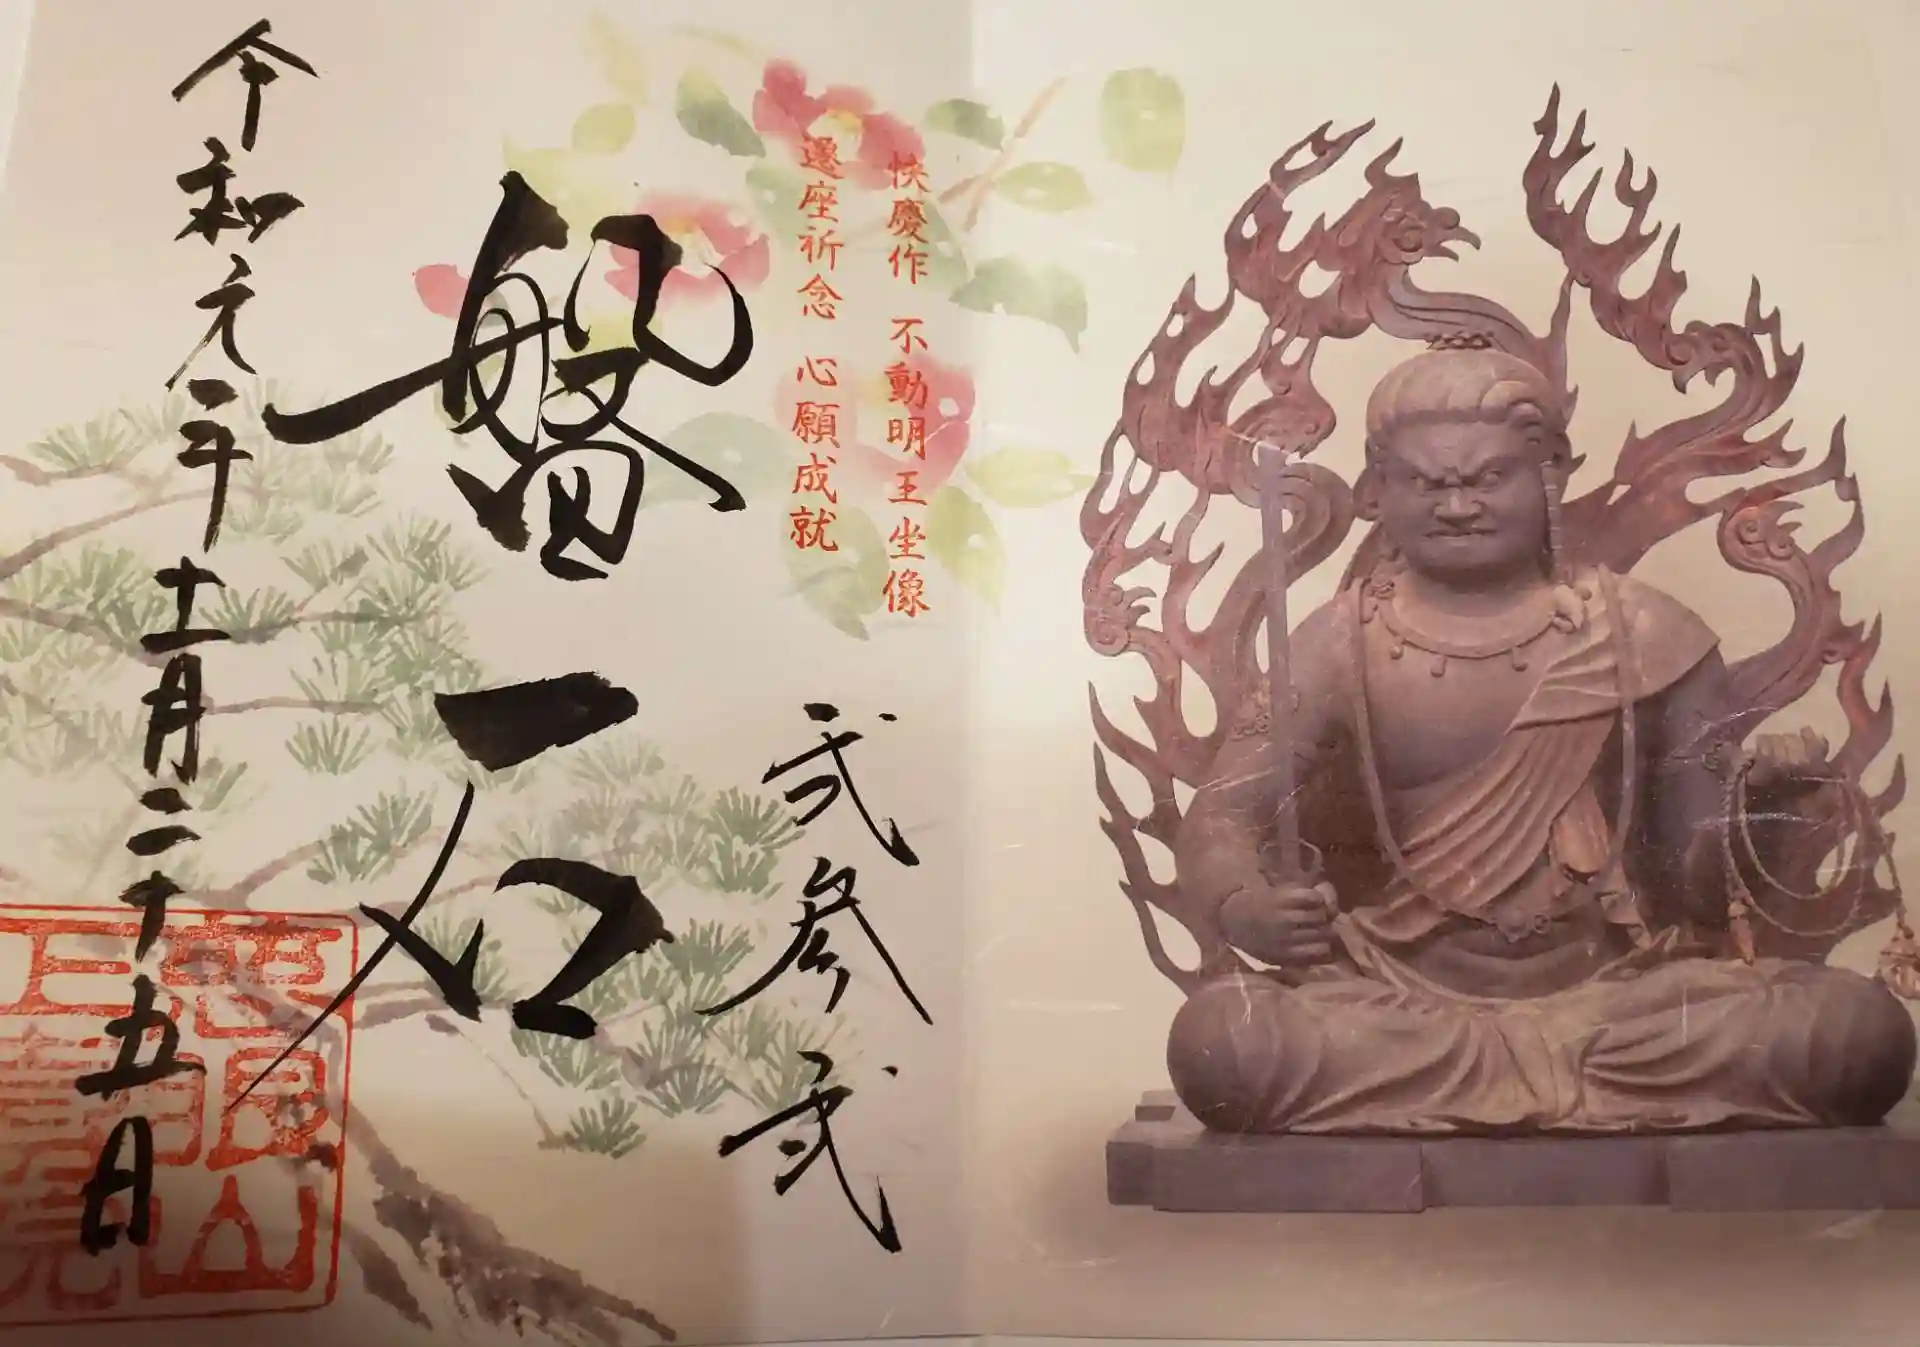 快慶作 不動明王坐像
遷座祈念 心願成就
弐参弐
盤石
令和元年十一月二十五日